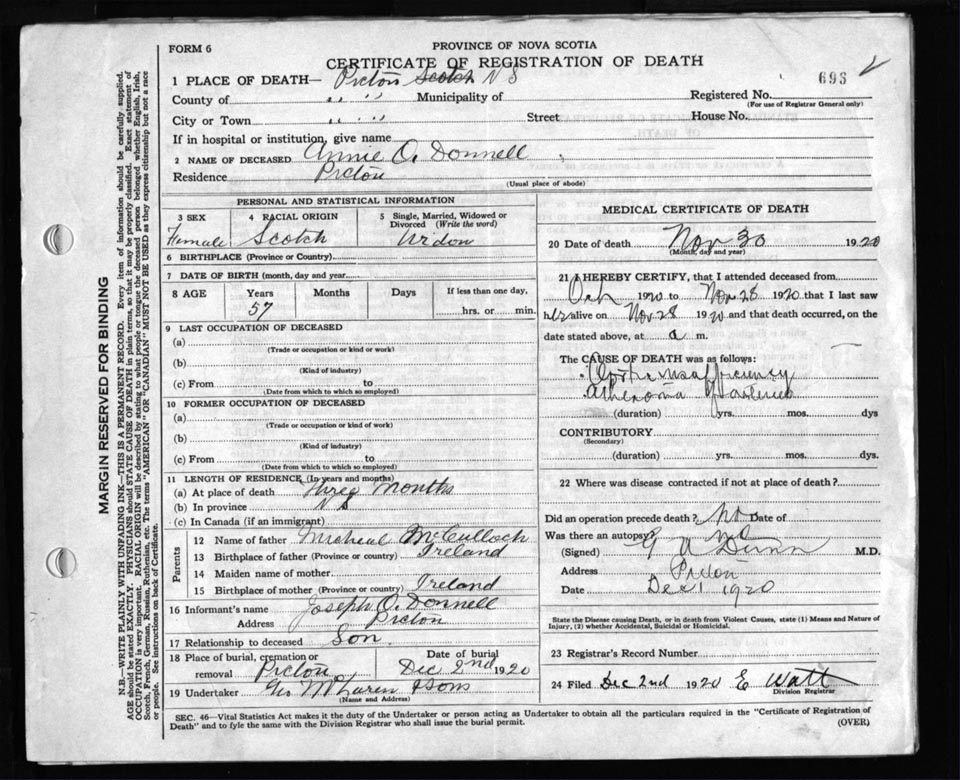 FORM 6
PROVINCE OF NOVA SCOTIA
CERTIFICATE OF REGISTRATION OF DEATH
693
1 PLACE OF DEATH— Pictou Scotch N S
Registered No.
(For use of Registrar General only)
County of " " Municipality of
City or Town " " Street House No.
If in hospital or institution, give name
2 NAME OF DECEASED Annie O. Donnell
Residence Pictou
(Usual place of abode)
PERSONAL AND STATISTICAL INFORMATION
3 SEX Female
4 RACIAL ORIGIN Scotch
5 Single, Married, Widowed or Divorced (Write the word) Widow
6 BIRTHPLACE (Province or Country)
7 DATE OF BIRTH (month, day and year)
8 AGE Years Months Days If less than one day,
57 hrs. or min.
9 LAST OCCUPATION OF DECEASED
(a)
(Trade or occupation or kind or work)
(b)
(Kind of industry)
(c) From to
(Date from which to which so employed)
10 FORMER OCCUPATION OF DECEASED
(a)
(Trade or occupation or kind of work)
(b)
(Kind of industry)
(c) From to
(Date from which to which so employed)
11 LENGTH OF RESIDENCE (In years and months)
(a) At place of death three months
(b) In province N S
(c) In Canada (if an immigrant)
Parents
12 Name of father Micheal McCulloch
13 Birthplace of father (Province or country) Ireland
14 Maiden name of mother
15 Birthplace of mother (Province or country) Ireland
16 Informant's name Joseph O. Donnell
Address Pictou
17 Relationship to deceased Son
18 Place of burial, cremation or removal Pictou
Date of burial Dec 2nd 1920
19 Undertaker Geo McLaren & Sons
(Name and Address)
MEDICAL CERTIFICATE OF DEATH
20 Date of death Nov 30 1920
(Month, day and year)
21 I HEREBY CERTIFY, that I attended deceased from
1920 to Nov 28 1920 that I last saw
alive on Nov 28 1920 and that death occurred, on
date stated above, at a m.
The CAUSE OF DEATH was as follows:
insufficiency
Atheroma of arteries
(duration) yrs. mos. dys
CONTRIBUTORY
(Secondary)
(duration) yrs. mos. dys.
22 Where was disease contracted if not at place of death?
Did an operation precede death? No Date of
Was there an autopsy? No
(Signed) G A Dunn M.D.
Address Pictou
Date Dec 1 1920
State the Disease causing Death, or in death from Violent Causes, state (1) Means and Nature of
Injury, (2) whether Accidental, Suicidal or Homicidal.
23 Registrar's Record Number
24 Filed Dec 2nd 1920 E Watt
Division Registrar
SEC. 46—Vital Statistics Act makes it the duty of the Undertaker or person acting as Undertaker to obtain all the particulars required in the "Certificate of Registration of
Death" and to fyle the same with the Division Registrar who shall issue the burial permit.
(OVER)
MARGIN RESERVED FOR BINDING
N.B.—WRITE PLAINLY WITH UNFADING INK—THIS IS A PERMANENT RECORD. Every item of information should be carefully supplied.
AGE should be stated EXACTLY. PHYSICIANS should STATE CAUSE OF DEATH in plain terms, so that it may be properly classified. Exact statement of
OCCUPATION is very important. RACIAL ORIGIN will be described by stating to what people or tongue the deceased person belonged whether English, Irish,
Scotch, French, German, Russian, Ruthenian, etc. The terms "AMERICAN" OR "CANADIAN" MUST NOT BE USED as they express citizenship but not a race
or people. See instructions on back of Certificate.